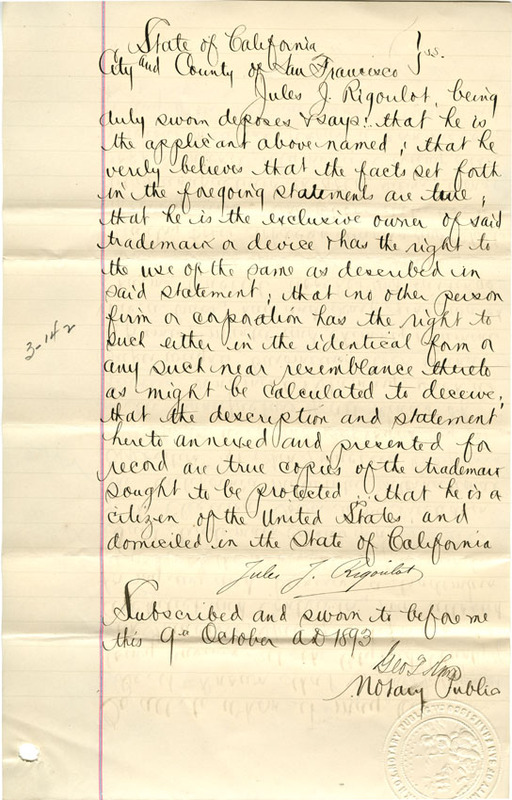 State of California
City and County of San Francisco } ss.
Jules J. Rigoulot, being
duly sworn deposes & says: that he is
the applicant above named; that he
verily believes that the facts set forth
in the foregoing statements are true;
that he is the exclusive owner of said
trademark or device & has the right to
the use of the same as described in
said statement; that no other person
firm or corporation has the right to
such either in the identical form or
any such near resemblance thereto
as might be calculated to deceive;
that the description and statement
hereto annexed and presented for
record are true copies of the trademark
sought to be protected; that he is a
citizen of the United States and
domiciled in the State of California
Jules J. Rigoulot
Subscribed and sworn to before me
this 9th October AD 1893
Geo T
Notary Public
3-142